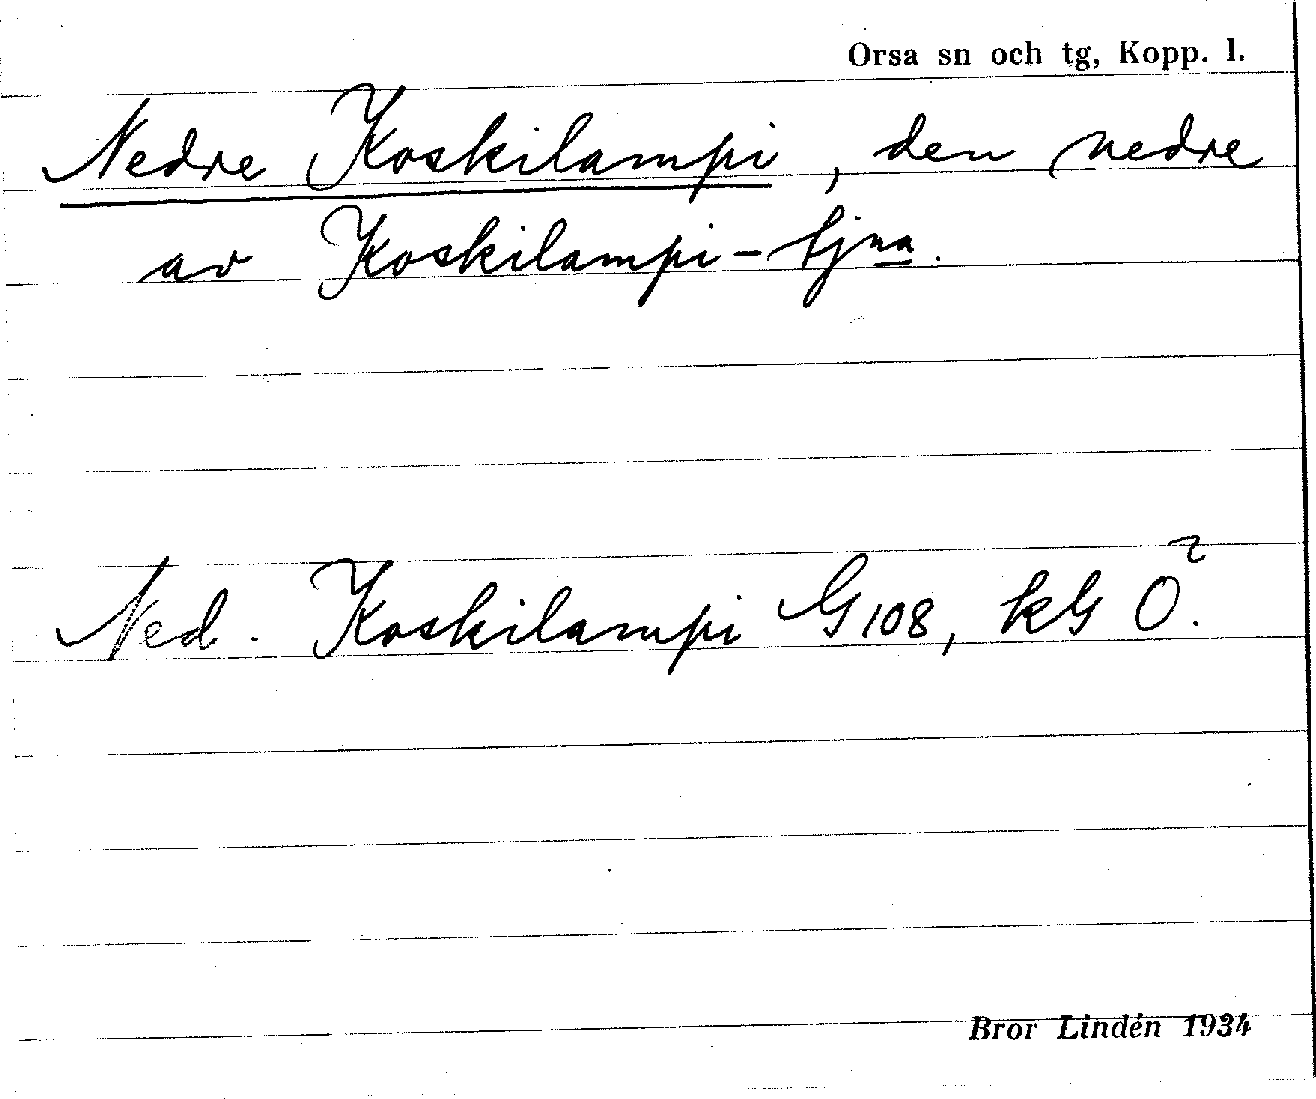 Orsa sn och tg, Kopp. l.
Nedre Koskilampi, den nedre
av Koskilampi-tjna.
Ned. Koskilampi G108, kG Ö.
Bror Lindén 1934